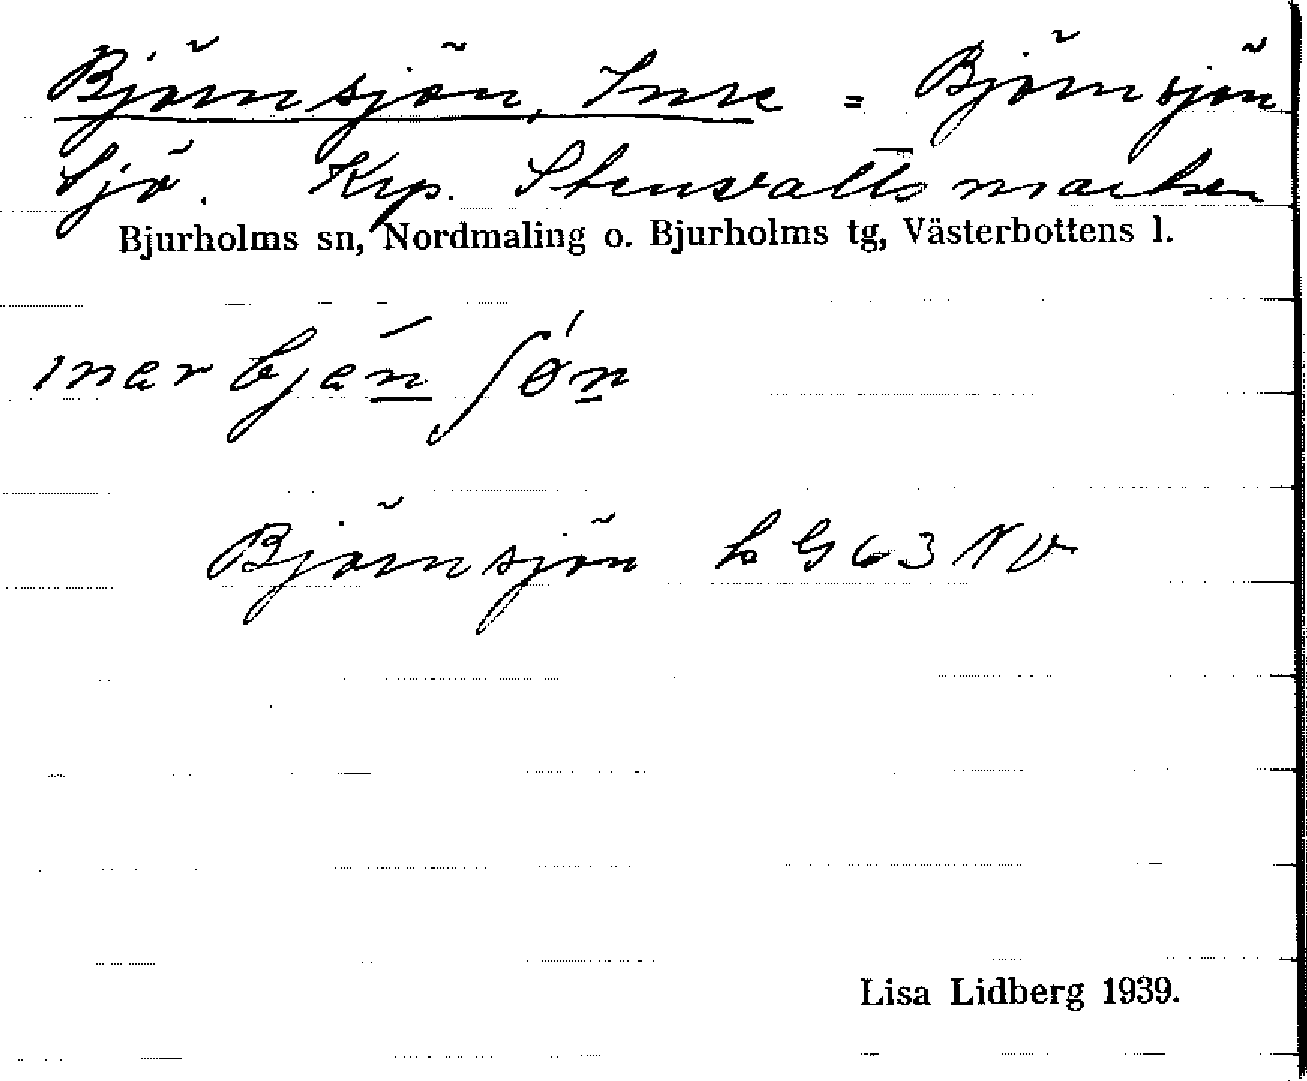 Björnsjön, Inre = Björnsjön
sjö. Krp. Stensvattsmarken
Bjurholms sn, Nordmaling o. Bjurholms tg, Västerbottens l.
ınar bjän ʃøn
Björnsjön h G 63 NV
Lisa Lidberg 1939.